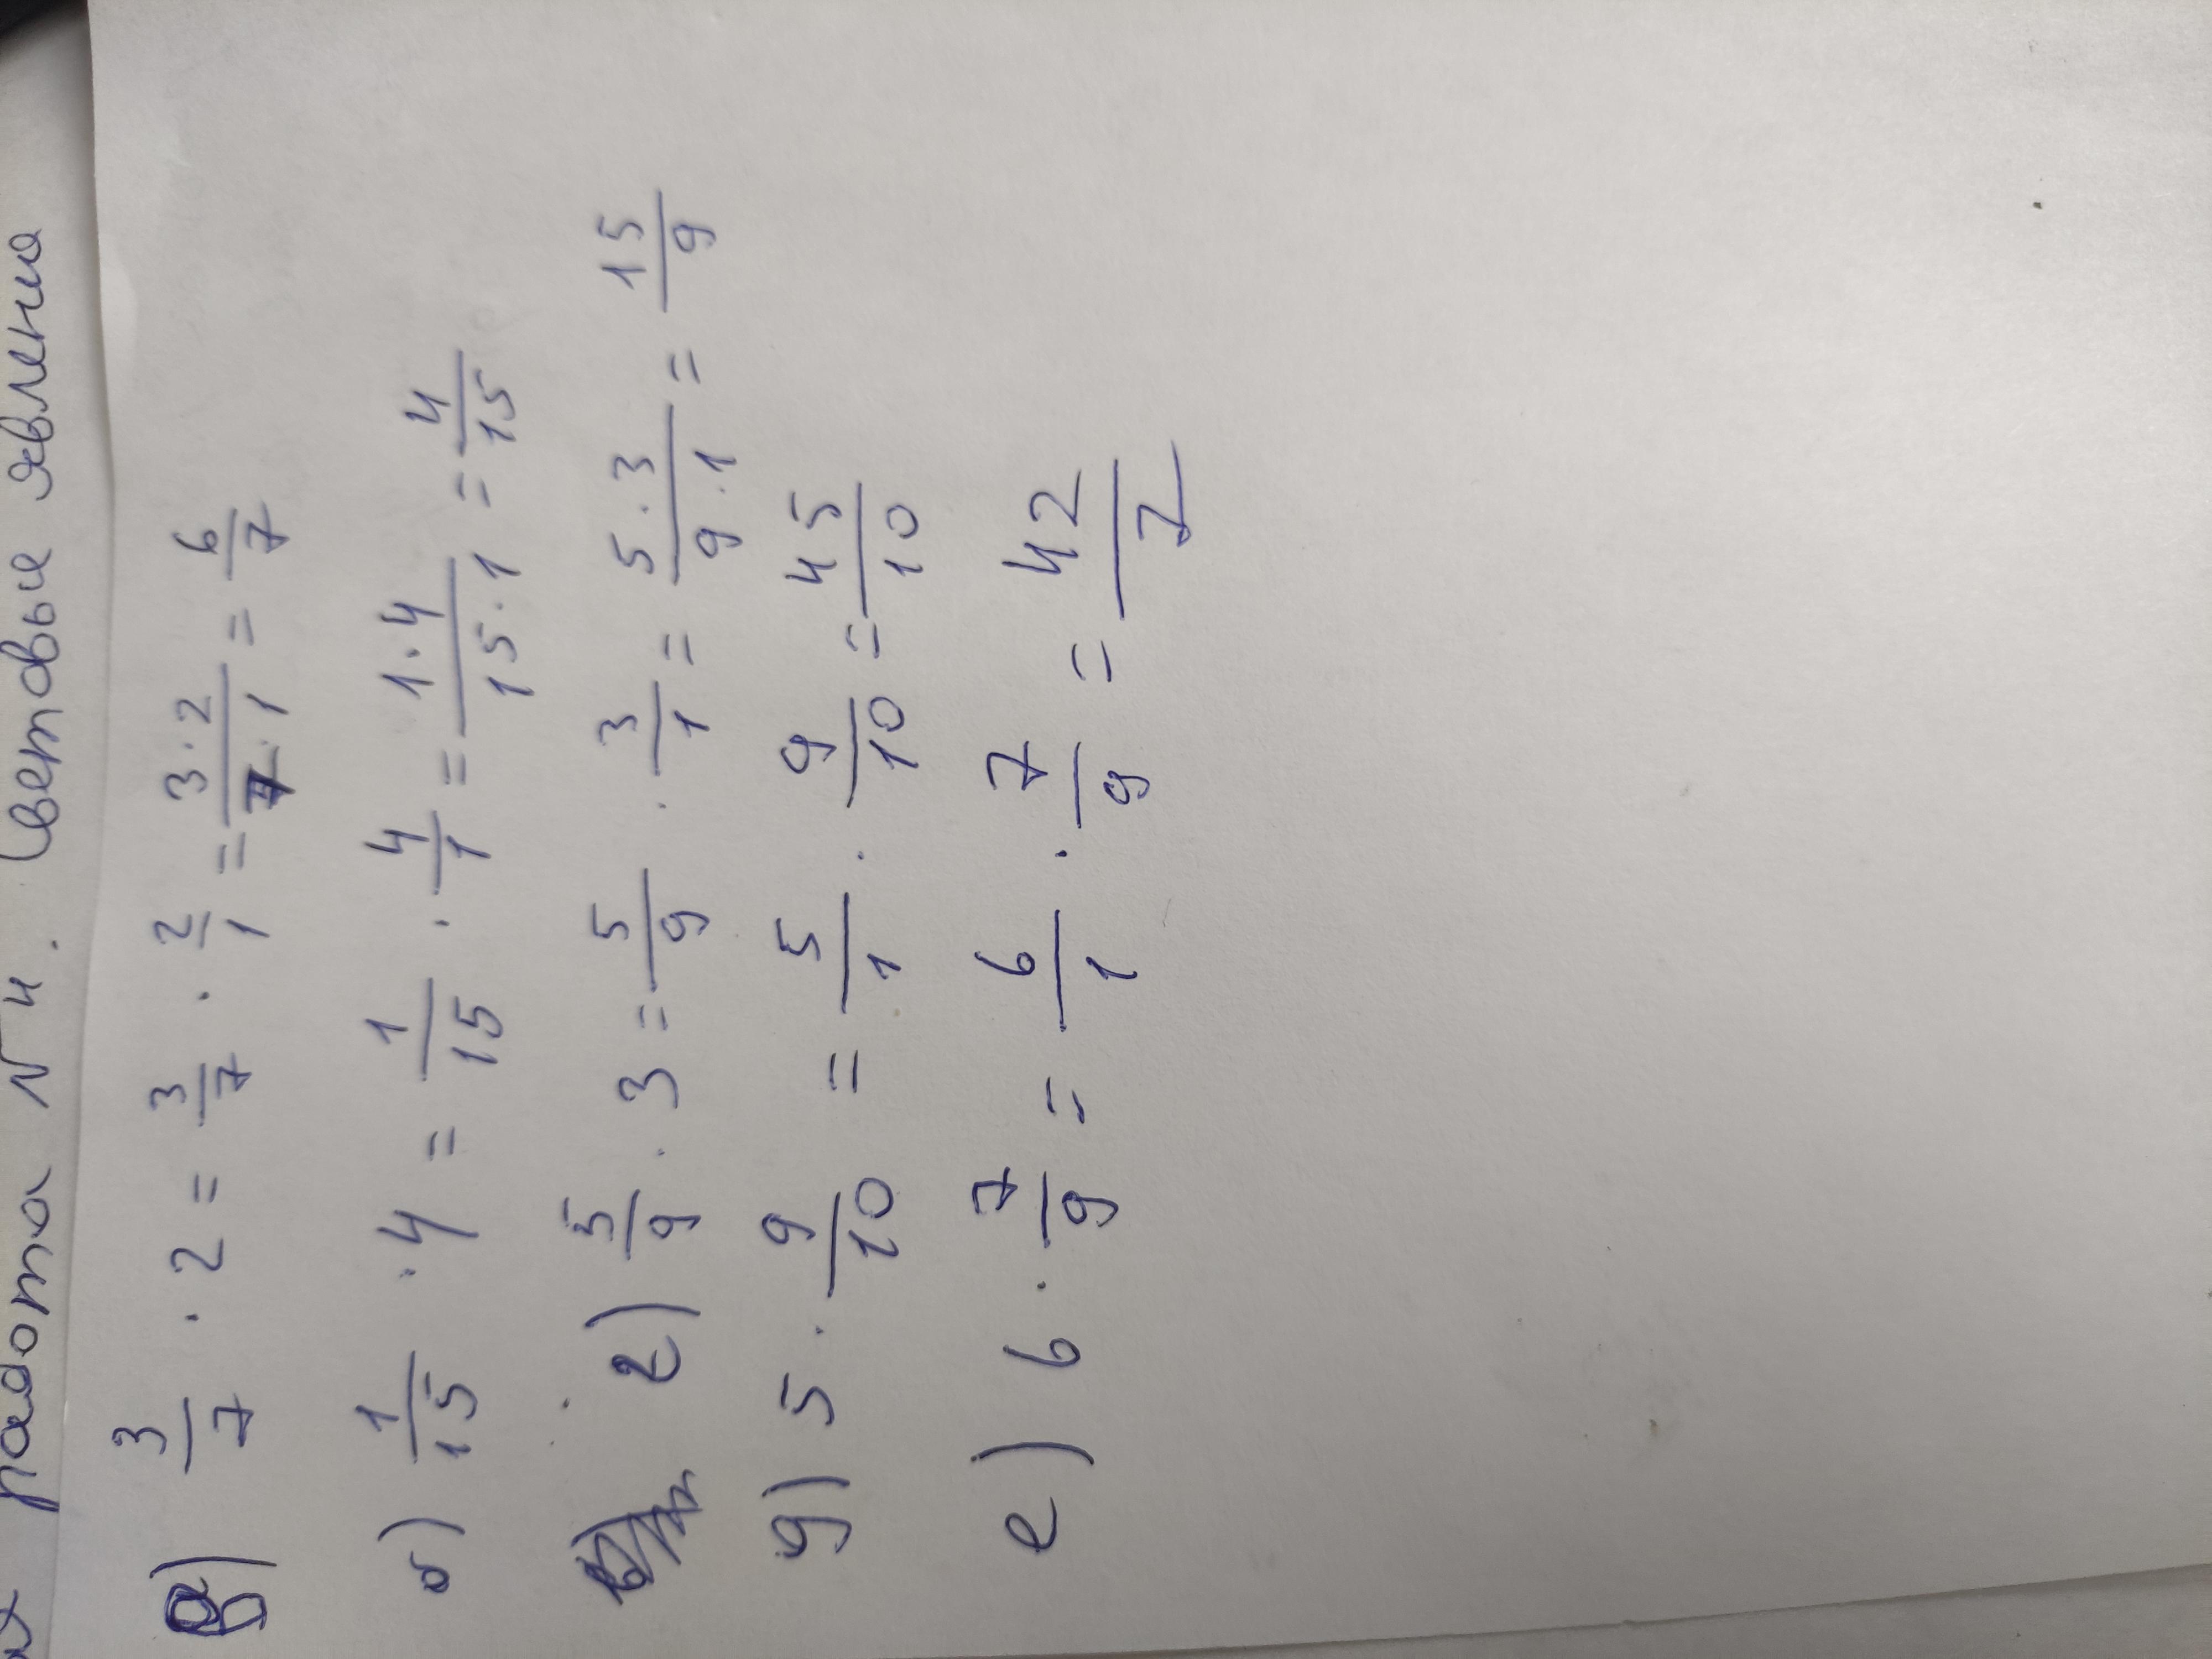 работа N 4. Световые явления
в) 3/7 · 2 = 3/7 · 2/1 = 3·2/7·1 = 6/7
б) 1/15 · 4 = 1/15 · 4/1 = 1·4/15·1 = 4/15
г) 5/9 · 3 = 5/9 · 3/1 = 5·3/9·1 = 15/9
д) 5 · 9/10 = 5/1 · 9/10 = 45/10
е) 6 · 7/9 = 6/1 · 7/9 = 42/